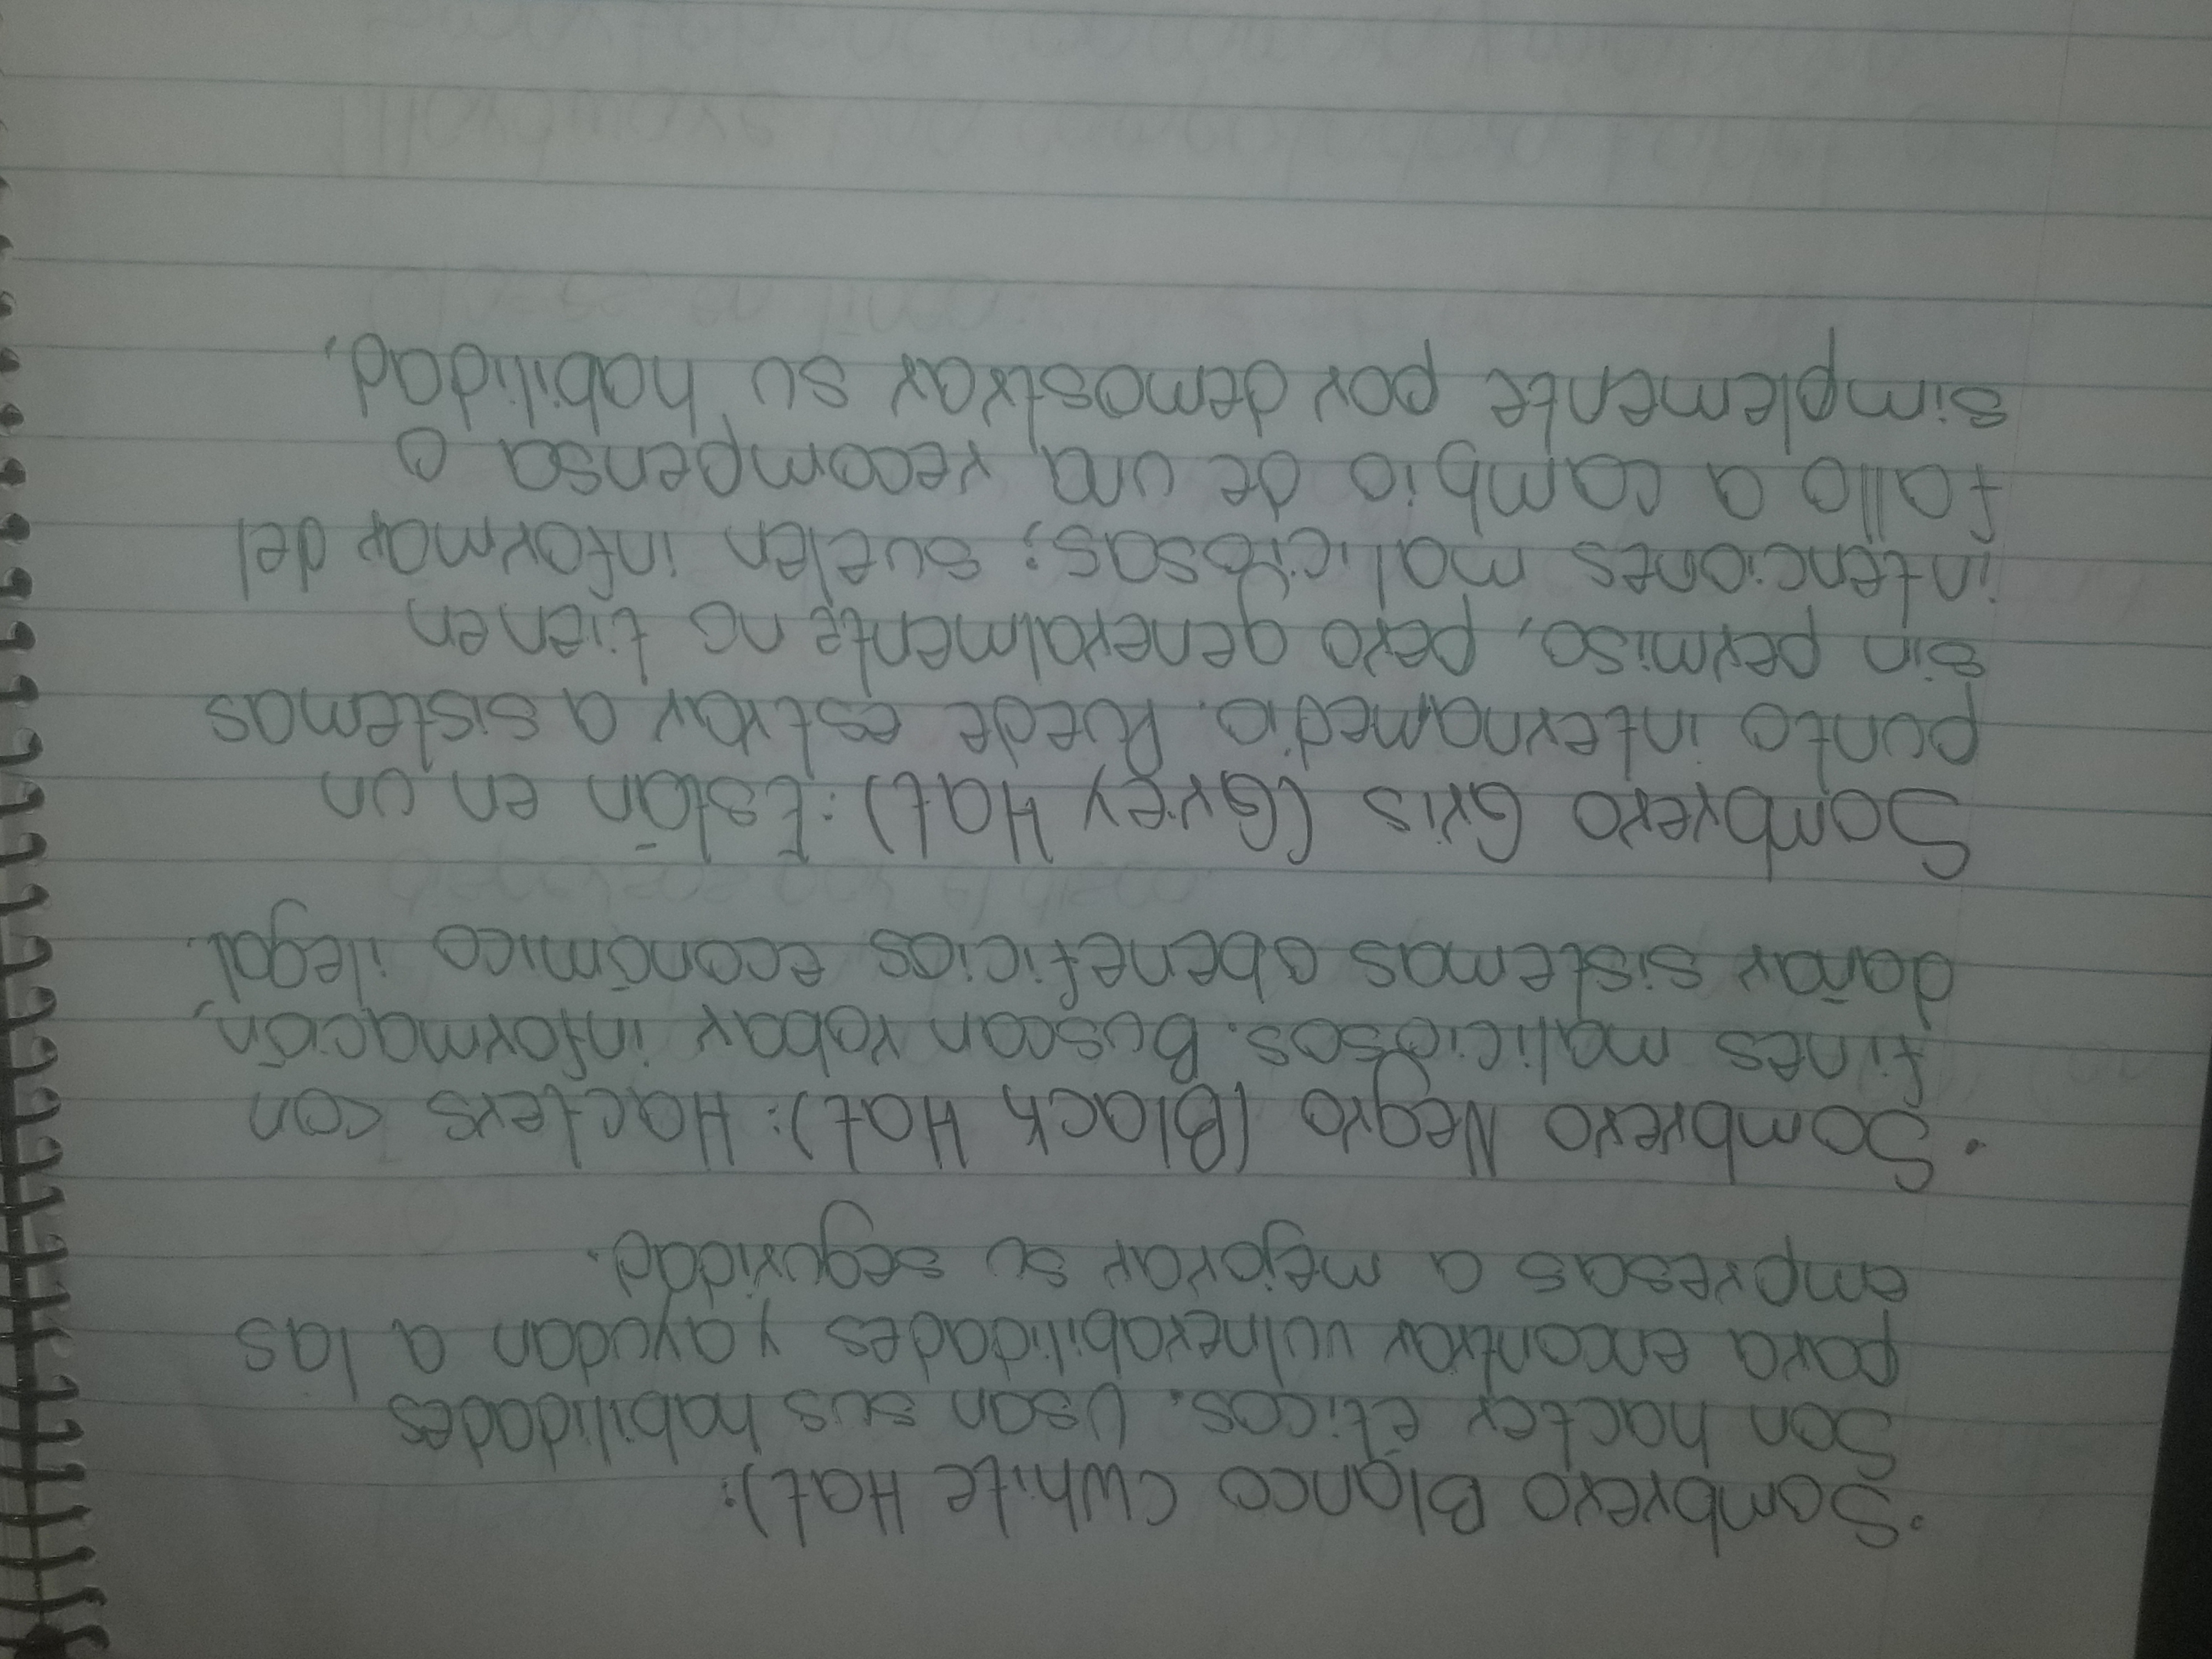 · Sombrero Blanco (White Hat):
Son hacker éticos. Usan sus habilidades
para encontrar vulnerabilidades y ayudan a las
empresas a mejorar su seguridad.
· Sombrero Negro (Black Hat): Hackers con
fines maliciosos. Buscan robar información,
dañar sistemas obeneficios económico ilegal.
Sombrero Gris (Grey Hat): Están en un
punto internamedio. Puede estrar a sistemas
sin permiso, pero generalmente no tienen
intenciones maliciosas; suelen informar del
fallo a cambio de una recompensa o
simplemente por demostrar su habilidad.